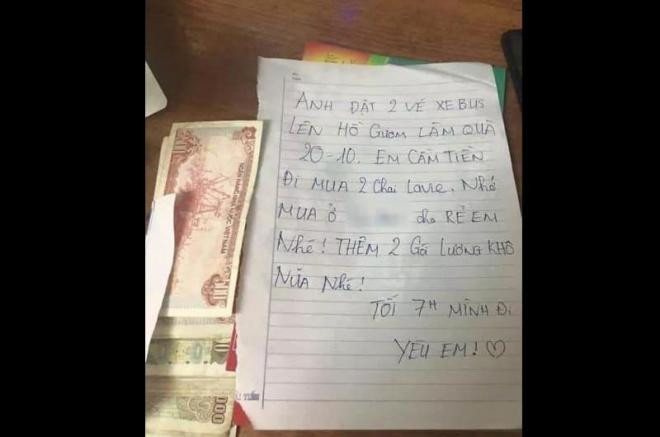 ANH ĐẶT 2 VÉ XE BUS
LÊN HỒ GƯƠM LÀM QUÀ
20-10. EM CẦM TIỀN
ĐI MUA 2 Chai Lavie. Nhớ
MUA Ở cho RẺ EM
Nhé! THÊM 2 Gói LƯƠNG KHÔ
NỮA Nhé!
TỐI 7H MÌNH ĐI
YÊU EM! ♡